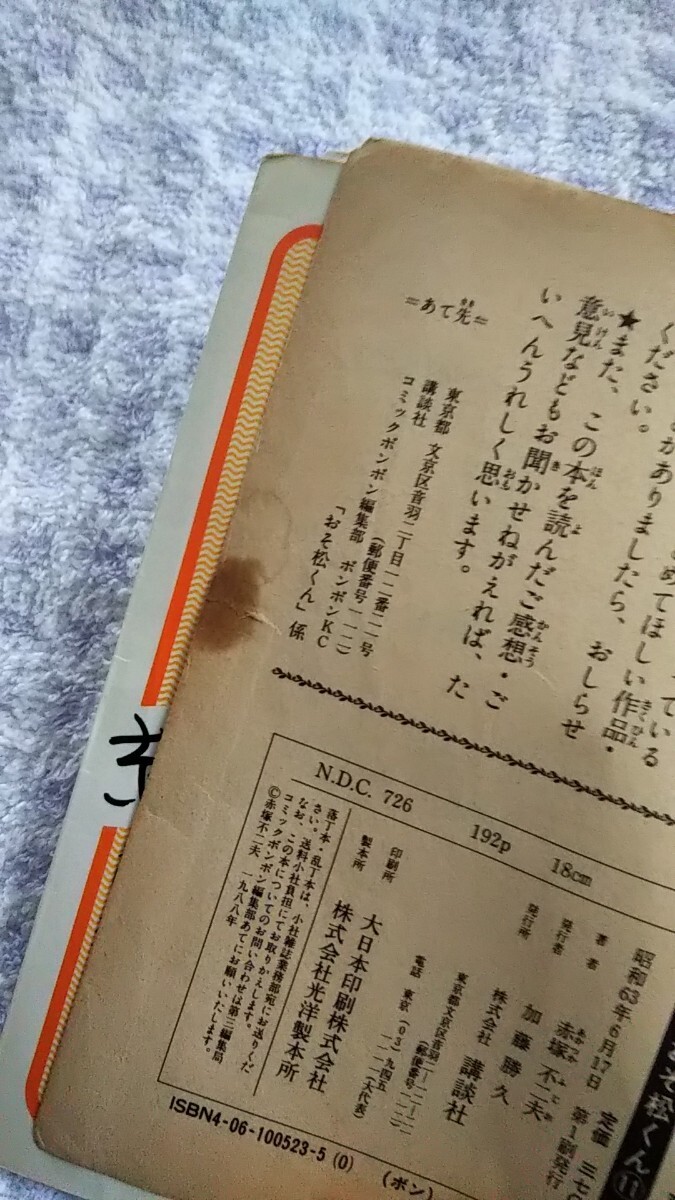 めてほしい作品・
ください。
がありましたら、おしらせ
★また、この本を読んだご感想・ご
意見などもお聞かせねがえれば、た
いへんうれしく思います。
=あて先=
東京都 文京区音羽二丁目一二番二一号
(郵便番号一一二)
講談社 コミックボンボン編集部 ボンボンKC
「おそ松くん」係
N.D.C. 726 192p 18cm
おそ松くん⑪
昭和63年6月17日 第1刷発行
定価 三七
著者 赤塚不二夫
発行者 加藤勝久
発行所 株式会社 講談社
東京都文京区音羽二-一二-二一
(郵便番号一一二)
電話 東京(03)九四五-一一一一(大代表)
印刷所 大日本印刷株式会社
製本所 株式会社光洋製本所
落丁本・乱丁本は、小社雑誌業務部宛にお送りくだ
さい。送料小社負担にてお取りかえします。
なお、この本についてのお問い合わせは第三編集局
コミックボンボン編集部あてにお願いいたします。
©赤塚不二夫 一九八八年
ISBN4-06-100523-5 (0)
(ボン)